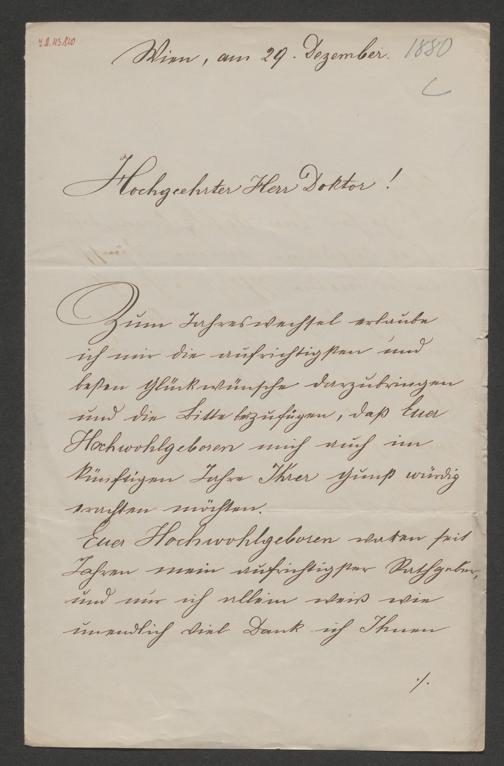 Wien, am 29. Dezember. 1880
Hochgeehrter Herr Doktor!
Zum Jahreswechsel erlaube
ich mir die aufrichtigsten und
besten Glückwünsche darzubringen
und die Bitte bezufügen, daß Euer
Hochwohlgeboren mich auch im
künftigen Jahre Ihrer Gunst würdig
erachten möchten.
Euer Hochwohlgeboren waren seit
Jahren mein aufrichtigster Rathgeber,
und nur ich allein weiß wie
unendlich viel Dank ich Ihnen
./.